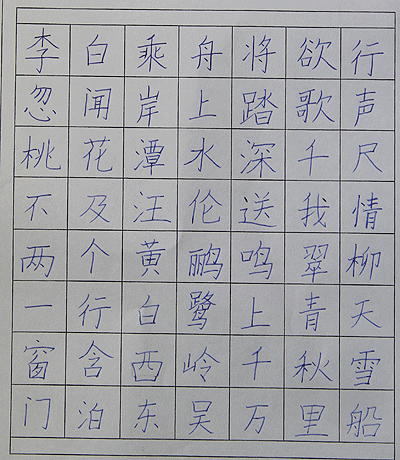 李白乘舟将欲行
忽闻岸上踏歌声
桃花潭水深千尺
不及汪伦送我情
两个黄鹂鸣翠柳
一行白鹭上青天
窗含西岭千秋雪
门泊东吴万里船